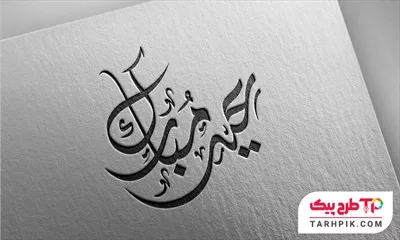 عيد مُبارَك
طرح پیک
TARHPIK.COM